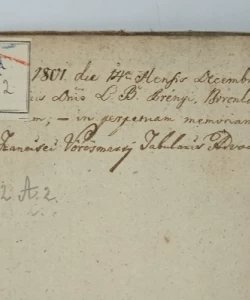 A
2
1801. die 14ta Mensis Decemb
Dnii L. B. Brényi, Boronk
m; — in perpetuam memoriam
Francisci Vörösmarty Tabularis Advoc
2 A. 2.